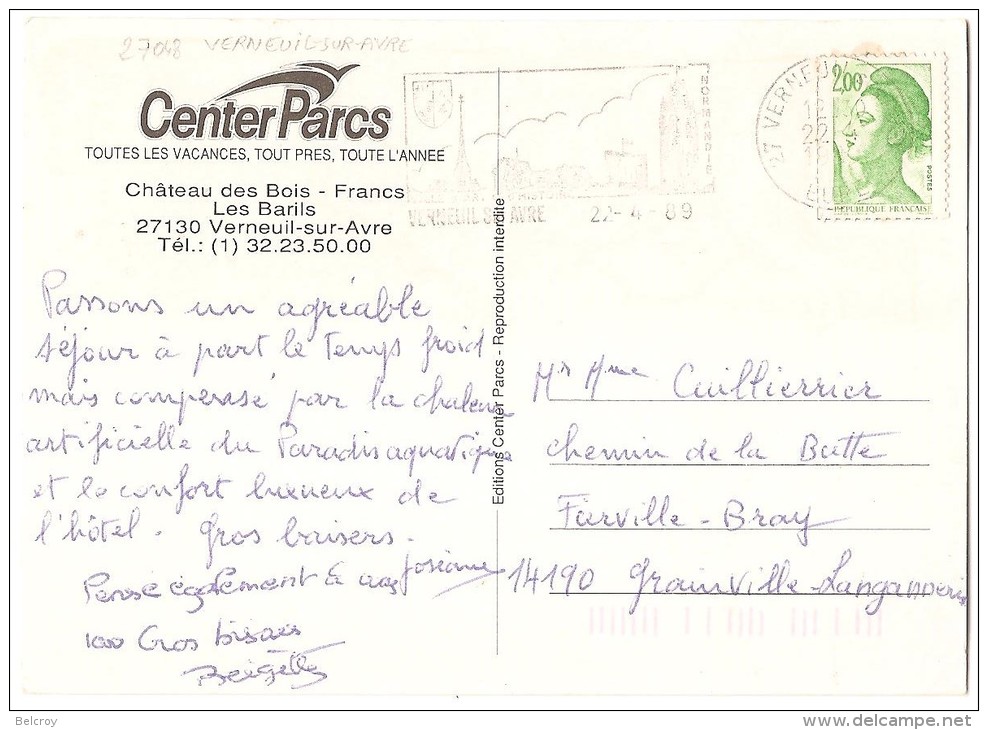 27048 VERNEUIL-SUR-AVRE
Center Parcs
TOUTES LES VACANCES, TOUT PRES, TOUTE L'ANNEE
Château des Bois - Francs
Les Barils
27130 Verneuil-sur-Avre
Tél.: (1) 32.23.50.00
Passons un agréable
séjour à part le temps froid
mais compensé par la chaleur
artificielle du Paradis aquatique
et le confort luxueux de
l'hôtel. Gros baisers.
Josiane
Pense également à vous
1000 Gros bisous
Brigitte
Editions Center Parcs - Reproduction interdite
NORMANDIE
VERNEUIL SUR AVRE 22-4-89
27 VERNEU
22
2,00
POSTES
REPUBLIQUE FRANÇAISE
Mr Mme Cuillierrier
chemin de la Butte
Fierville-Bray
14190 Grainville-Langannerie
Belcroy
www.delcampe.net